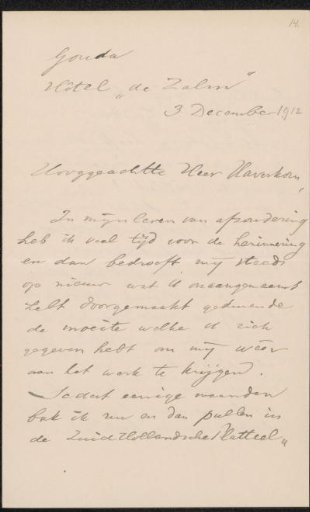 14.
Gouda
Hôtel „de Zalm"
3 December 1912
Hooggeachtte Heer Haverkorn,
In mijn leven van afzondering
heb ik veel tijd voor de herinnering
en dan bedroeft mij steeds
op nieuw wat U onaangenaams
hebt doorgemaakt gedurende
de moeite welke U zich
gegeven hebt om mij weer
aan het werk te krijgen.
Sedert eenige maanden
bak ik nu en dan pullen in
de Zuid Hollandsche Platteel„